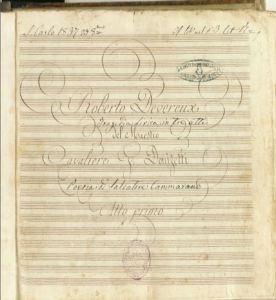 S. Carlo 1837
Roberto Devereux
Tragedia lirica in tre atti
del Maestro
Cavaliere G. Donizetti
Poesia di Salvatore Cammarano
Atto primo